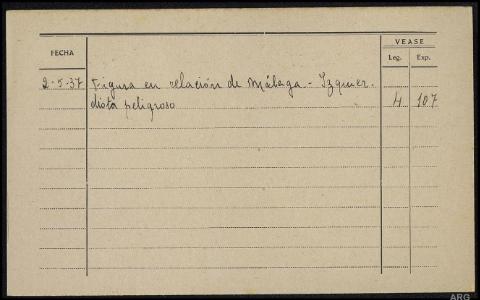 VEASE
FECHA
Leg. Exp.
2-5-37 Figura en relación de Málaga.- Izquier-
dista peligroso 4 107
ARG